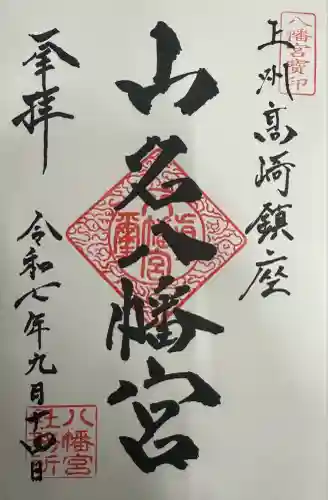 八幡宮寳印
上州高崎鎮座
山名八幡宮
奉拝
令和七年九月十四日
八幡宮
社務所